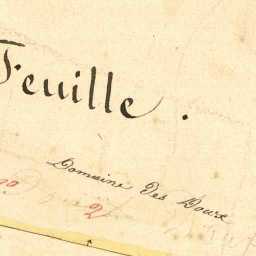 Feuille.
Domaine des Doux
2